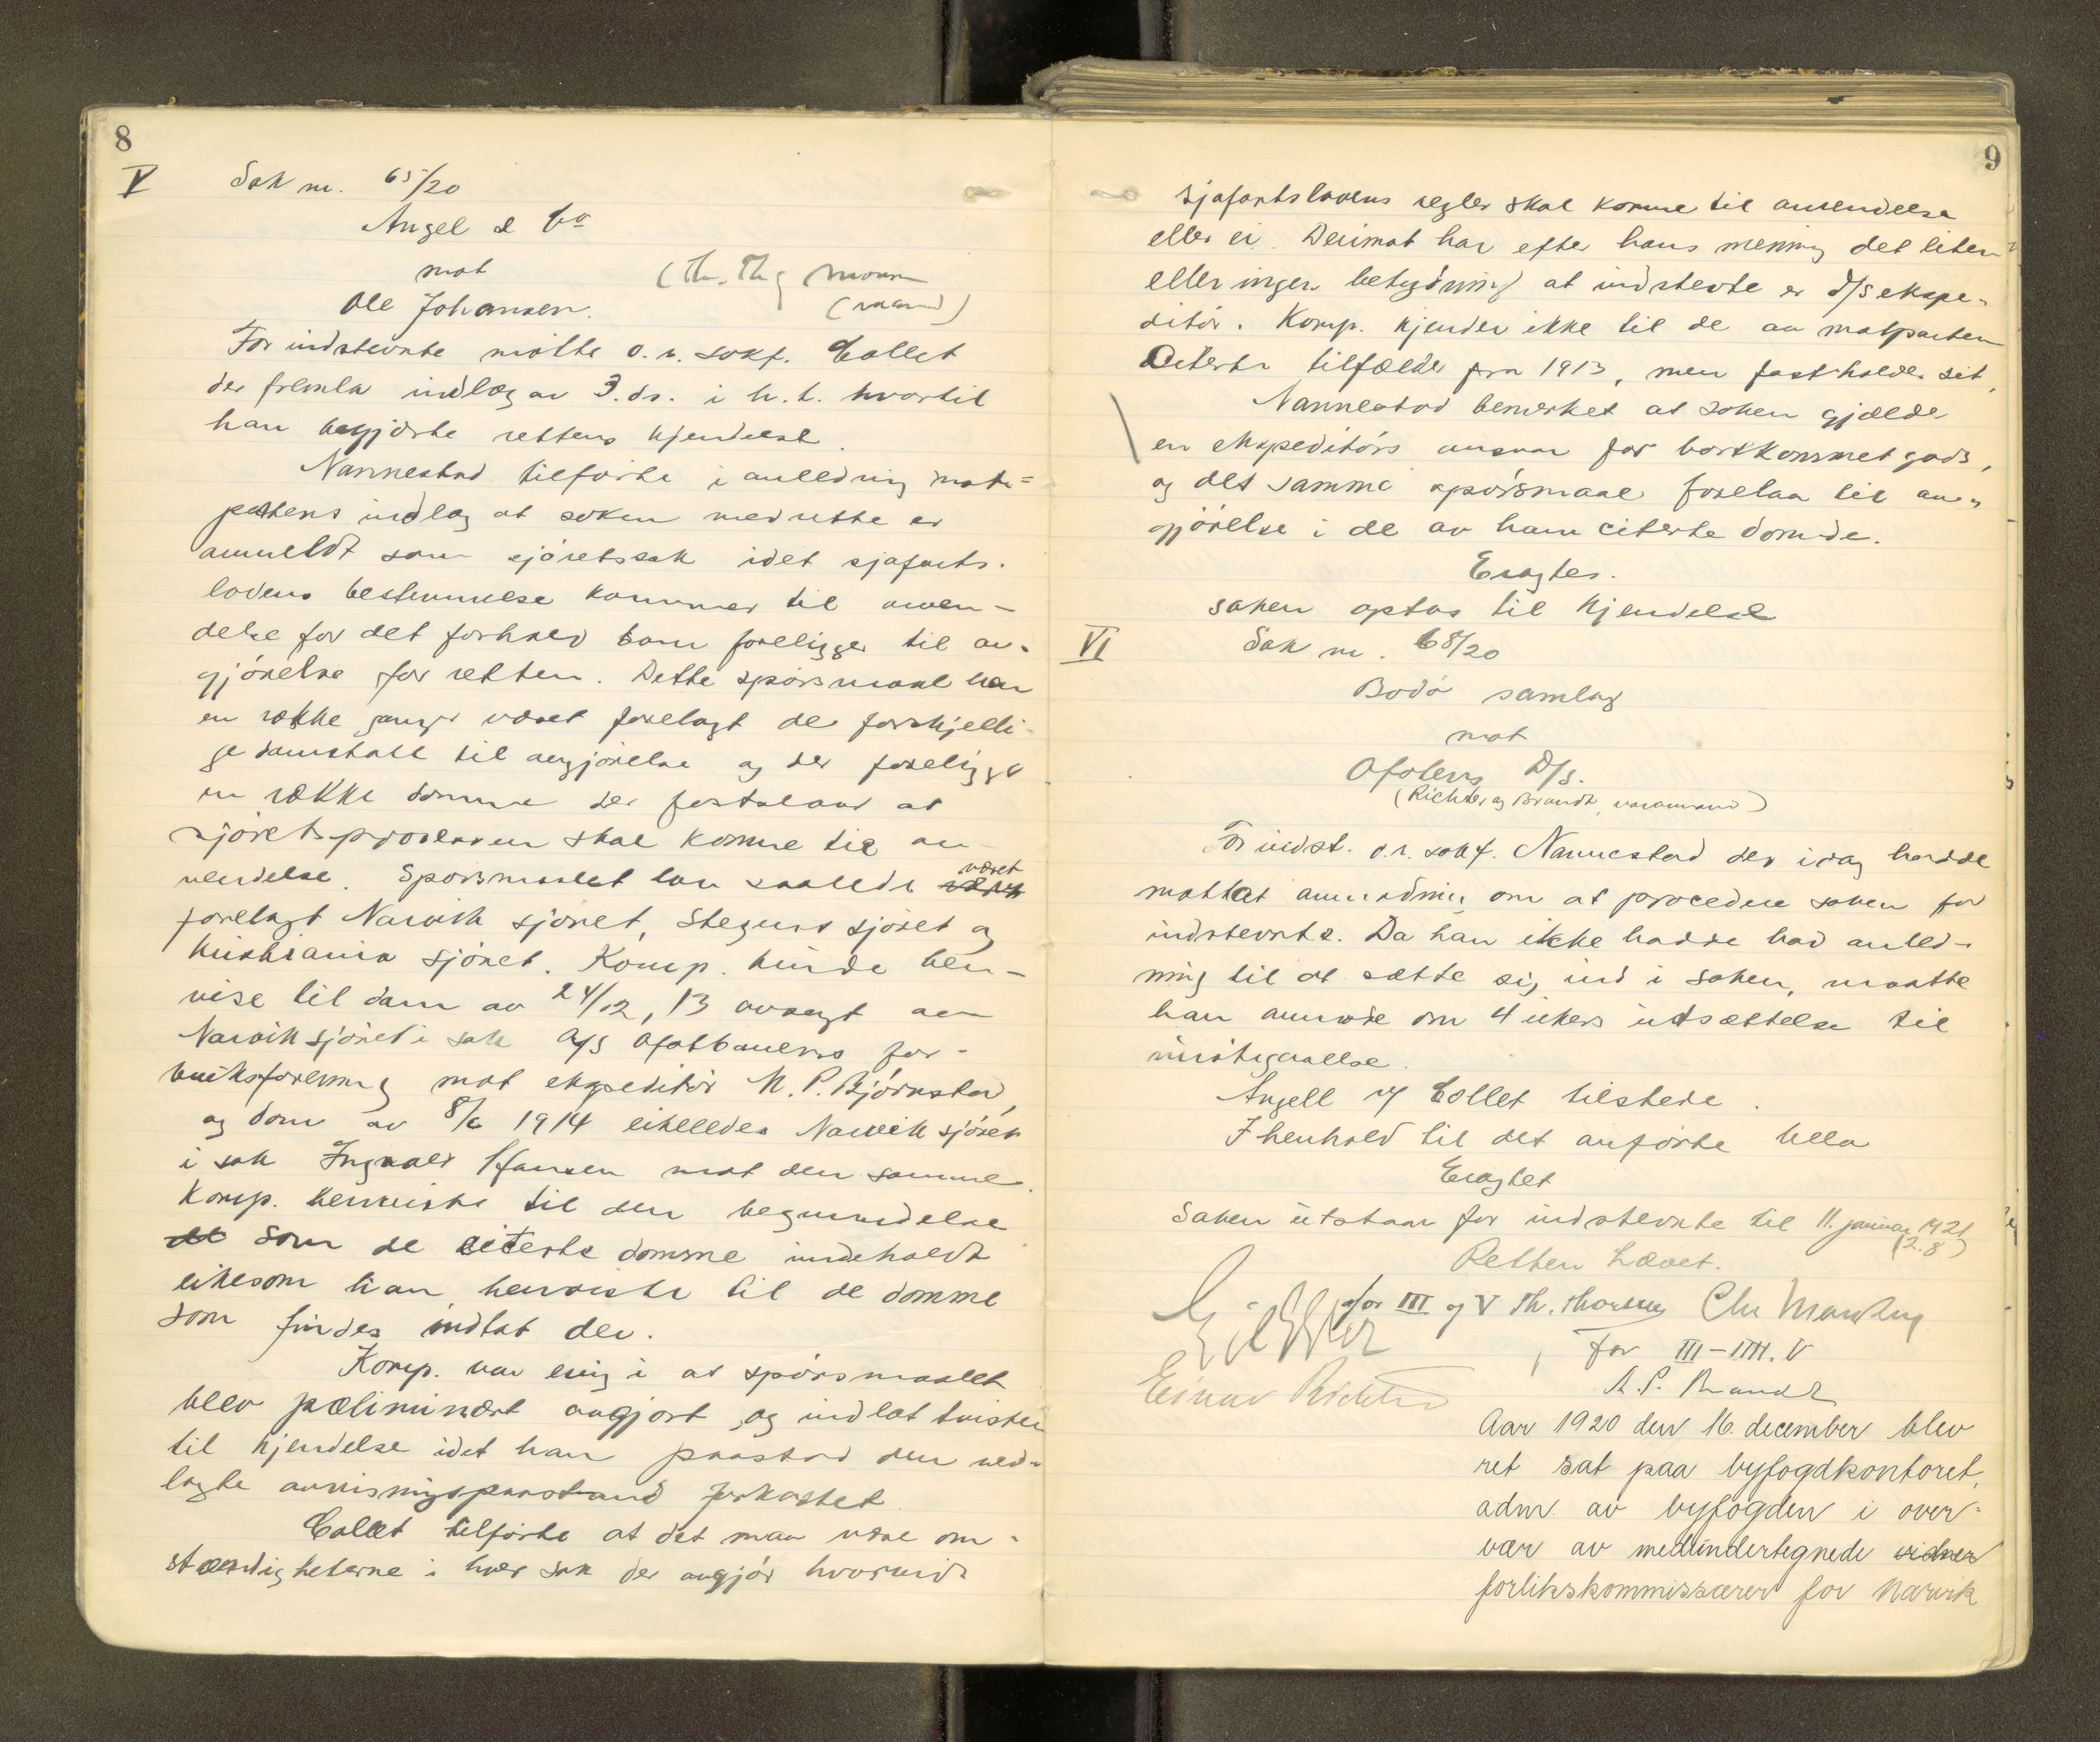 8
V Sak nr. 65/20
Angel & Co
mot
Ole Johansen.
For indstevnte møtte o.r. sakf. Collet
der fremla indlæg av 3. ds. i h.t. hvortil
han begjærte rettens kjendelse.
Nannestad tilførte i anledning mot=
partens indlæg at saken med rette er
anmeldt som sjøretssak idet sjøfarts-
lovens bestemmelse kommer til anven-
delse for det forhold som foreligger til av-
gjørelse for retten. Dette spørsmaal har
en række ganger været forelagt de forskjelli-
ge domstole til avgjørelse og der foreligger
en række domme der fastslaar at
sjøretsprosloven skal komme til an-
vendelse. Spørsmaalet har saaledes været
forelagt Narvik sjøret, Steguns sjøret og
Kristiania sjøret. Komp. kunde hen-
vise til dom av 24/12, 13 avsagt av
Narvik sjøret i sak A/S Ofotbanens for-
bruksforening mot ekspeditør N. P. Bjørnstad,
og dom av 8/6 1914 likeledes Narvik sjøret
i sak Ingvald Hansen mot den samme.
Komp. henviste til den begrundelse
som de citerte domme indeholdt
likesom han henviste til de domme
som findes indtat der.
Komp. var enig i at spørsmaalet
blev præliminært avgjort, og indlot tvisten
til kjendelse idet han paastod den ned-
lagte avvisningspaastand forkastet.
Collet tilførte at det maa være om-
stændigheterne i hver sak der avgjør hvorvidt
9
sjøfartslovens regler skal komme til anvendelse
eller ei. Derimot har efter hans mening det liten
eller ingen betydning at indstevte er D/S ekspe-
ditør. Komp. kjender ikke til de av motparten
citerte tilfælder fra 1913, men fastholder sit.
Nannestad bemerket at saken gjælder
en ekspeditørs ansvar for bortkommet gods,
og det samme spørsmaal forelaa til av-
gjørelse i de av ham citerte domde.
Eragtes.
saken optas til kjendelse
VI Sak nr. 68/20
Bodø samlag
mot
Ofotens D/S.
(Richter og Brandt, varamand)
For indst. o.r. sakf. Nannestad der idag hadde
mottat anmodning om at procedere saken for
indstevnte. Da han ikke hadde had anled-
ning til at sætte sig ind i saken, maatte
han anmode om 4 ukers utsættelse til
imøtegaaelse.
Angell v/ Collet tilstede.
I henhold til det anførte blev
Eragtet
Saken utstaar for indstevnte til 11. januar 1921
(2.8)
Retten hævet.
for III og V Th. Chr
for III – IIII. V
Einar Richter
N. P. Brandt
Aar 1920 den 16. december blev
ret sat paa byfogdkontoret,
adm. av byfogden i over-
vær av medundertegnede vidner
forlikskommissærer for Narvik